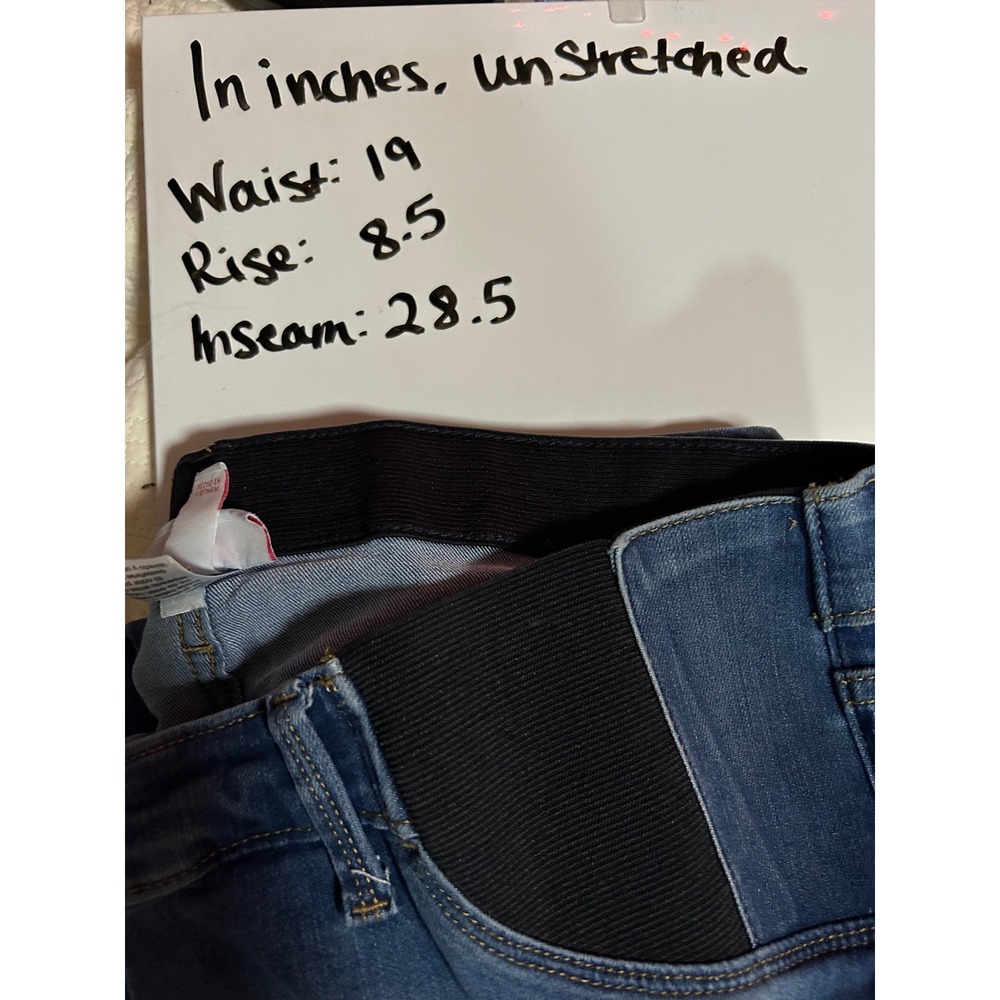 In inches, unstretched
Waist: 19
Rise: 8.5
Inseam: 28.5